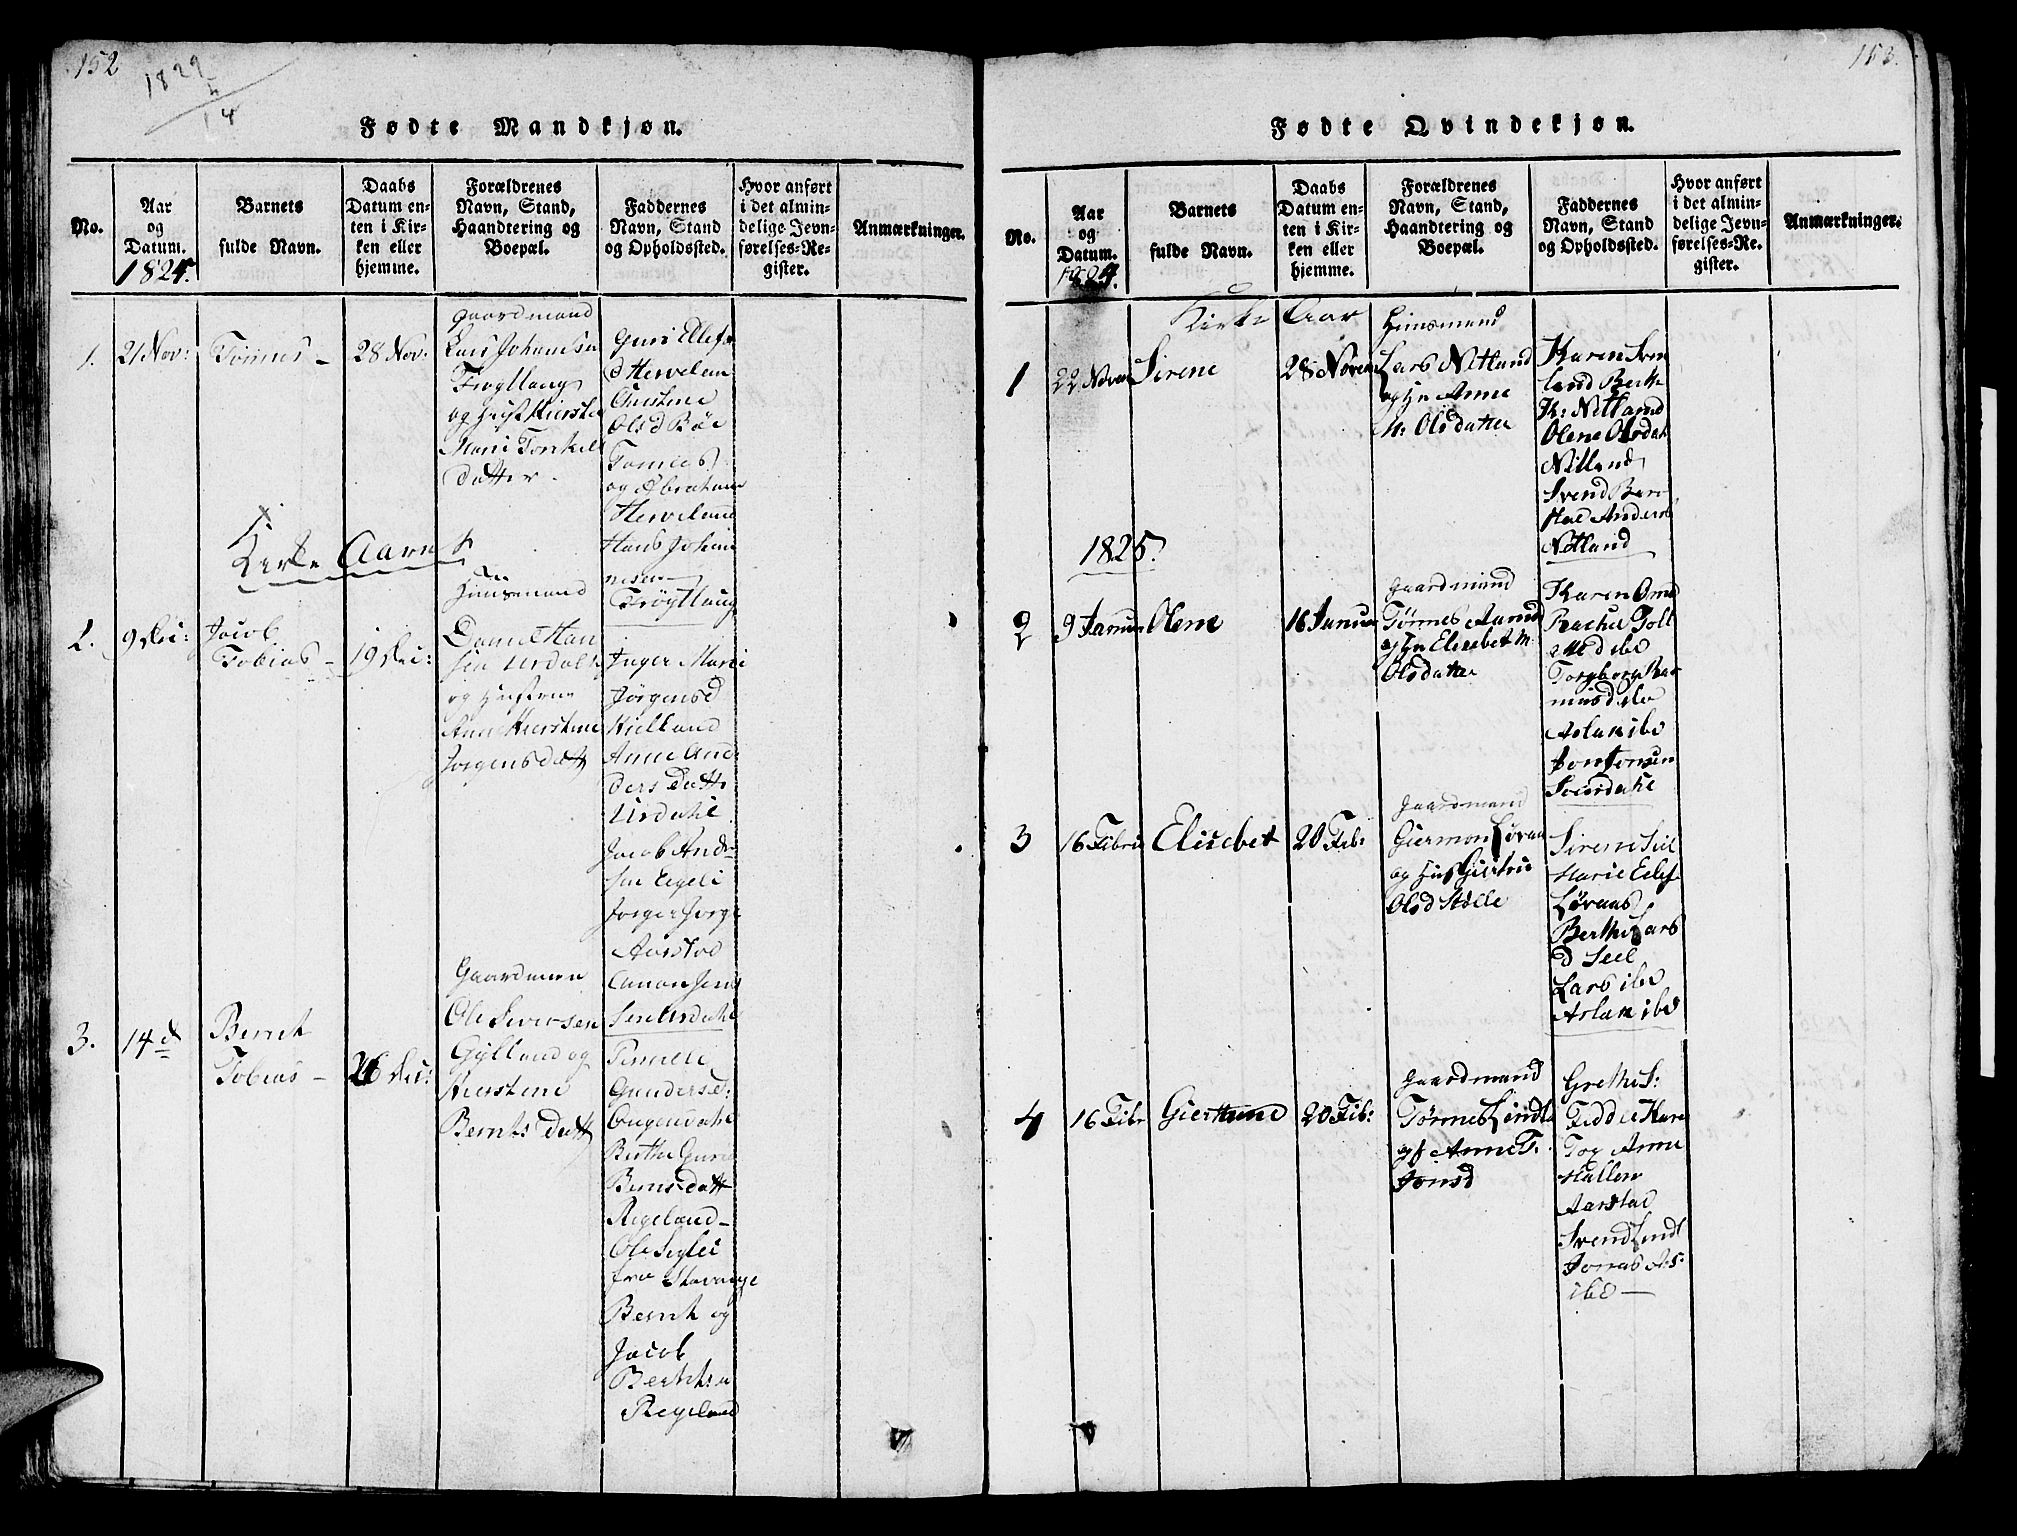 152
1829
14
Fødte Mandkjøn.
No.
Aar
og
Datum.
1824.
Barnets
fulde Navn.
Daabs
Datum en-
ten i Kir-
ken eller
hjemme.
Forældrenes
Navn, Stand,
Haandtering og
Boepæl.
Faddernes
Navn, Stand
og Opholdssted.
Hvor anført
i det almin-
delige Jevn-
førelses-Re-
gister.
Anmærkninger.
1.
21 Nov:
Tønnes –
28 Nov:
Gaardmand
Lars Johansen
Frøytlaug
og
Torkels
Datter.
Guri Ellefs
d Hervelan
Christine
Olsd Bøe
Tønnes
og Abraham
Hervelann
Hans Johan
nesen
Frøytlaug
Kirke Aaret
2.
9 Dec:
Jacob
Tobias –
19 Dec:
Huusmand
Daniel Han
sen Urdals
og Hustrue
Anne Kierstine
Jørgensdatt
Inger Marie
Jørgensd
Kielland
Anne An
ders Datt
Urdahl
Jacob Andr
sen Egeli
Jørgen Jørg
Aarstad
Jens
Sen Urdahl
3.
14 d
Bernt
Tobias –
26 Dec:
Gaardmann
Ole Siversen
Gylland og
Kierstine
Bernts Datt
Pernille
Gundersd:
Eugendahl
Berthe Guri
Berntsdatt
Regeland –
Ole Seglei
fra Stavange
Bernt og
Jacob
Berntsen
Regeland
153.
Fødte Qvindekjøn.
No.
Aar
og
Datum.
1824.
Barnets
fulde Navn.
Daabs
Datum en-
ten i Kir-
ken eller
hjemme.
Forældrenes
Navn, Stand,
Haandtering og
Boepæl.
Faddernes
Navn, Stand
og Opholdssted.
Hvor anført
i det almin-
delige Jevn-
førelses-Re-
gister.
Anmærkninger.
Kirke Aar
1
22 Novem
Sirene
28 Novem
Huusmand
Lars Netland
og Hu Anne
M: Olsdatter
Karen Sven
land Berthe
K: Netland
Olene Olsdat
Netland
Svend Bero
Hal Anders
Netland
1825.
2
9 Januar
Olene
16 Januar
Gaardmand
Tønnes Aamod
og Hu Elisebet M.
Olsdatter
Karen Omd
Rachel Toll
ibd
Torgborg Ras
musd ibd
Aslak ibd
Jon Jonsen
Souidahl
3
16 Febru
Elisebet
20 Feb:
Gaardmand
Giermon Løvaas
og Hus Giertrue
Olsd Stølle
Sirene Seel
Marie Ellefs
Løvaas
Berthe Lars
d Seel
Lars ibd
Aslak ibd
4
16 Febr
Gierthine
20 Feb:
Gaardmand
Tønnes Lindl
og Anne T.
Jonsd
Grethe S:
Fedde Kare
Tog Anne
Mallen
Aarstad
Svend Lindl
Jonas A:S:
ibd –